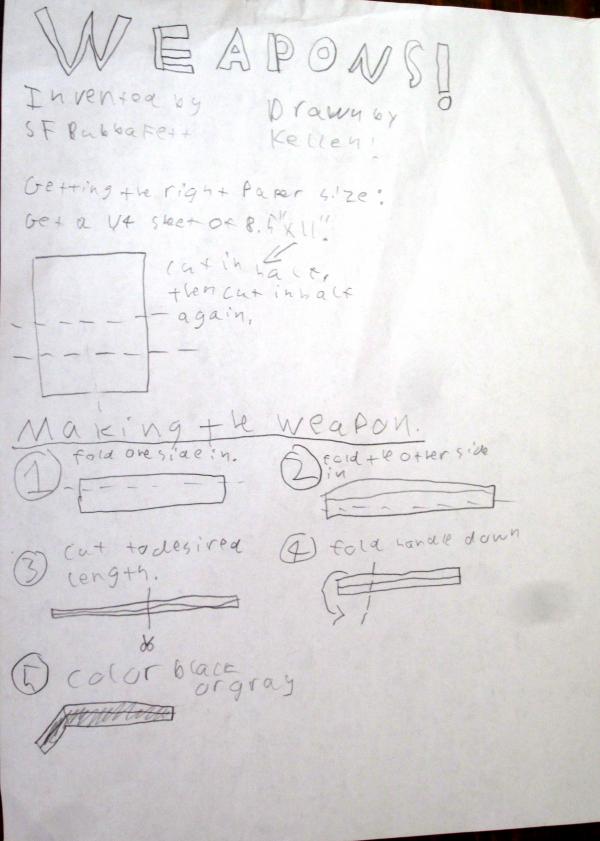 WEAPONS!
Invented by
SF BubbaFett
Drawn by
Kellen!
Getting the right Paper size:
Get a 1/4 sheet of 8.5"x11".
cut in half,
then cut in half
again.
Making the weapon.
1 fold one side in.
2 fold the other side
in
3 cut to desired
length.
4 fold handle down
5 color black
or gray